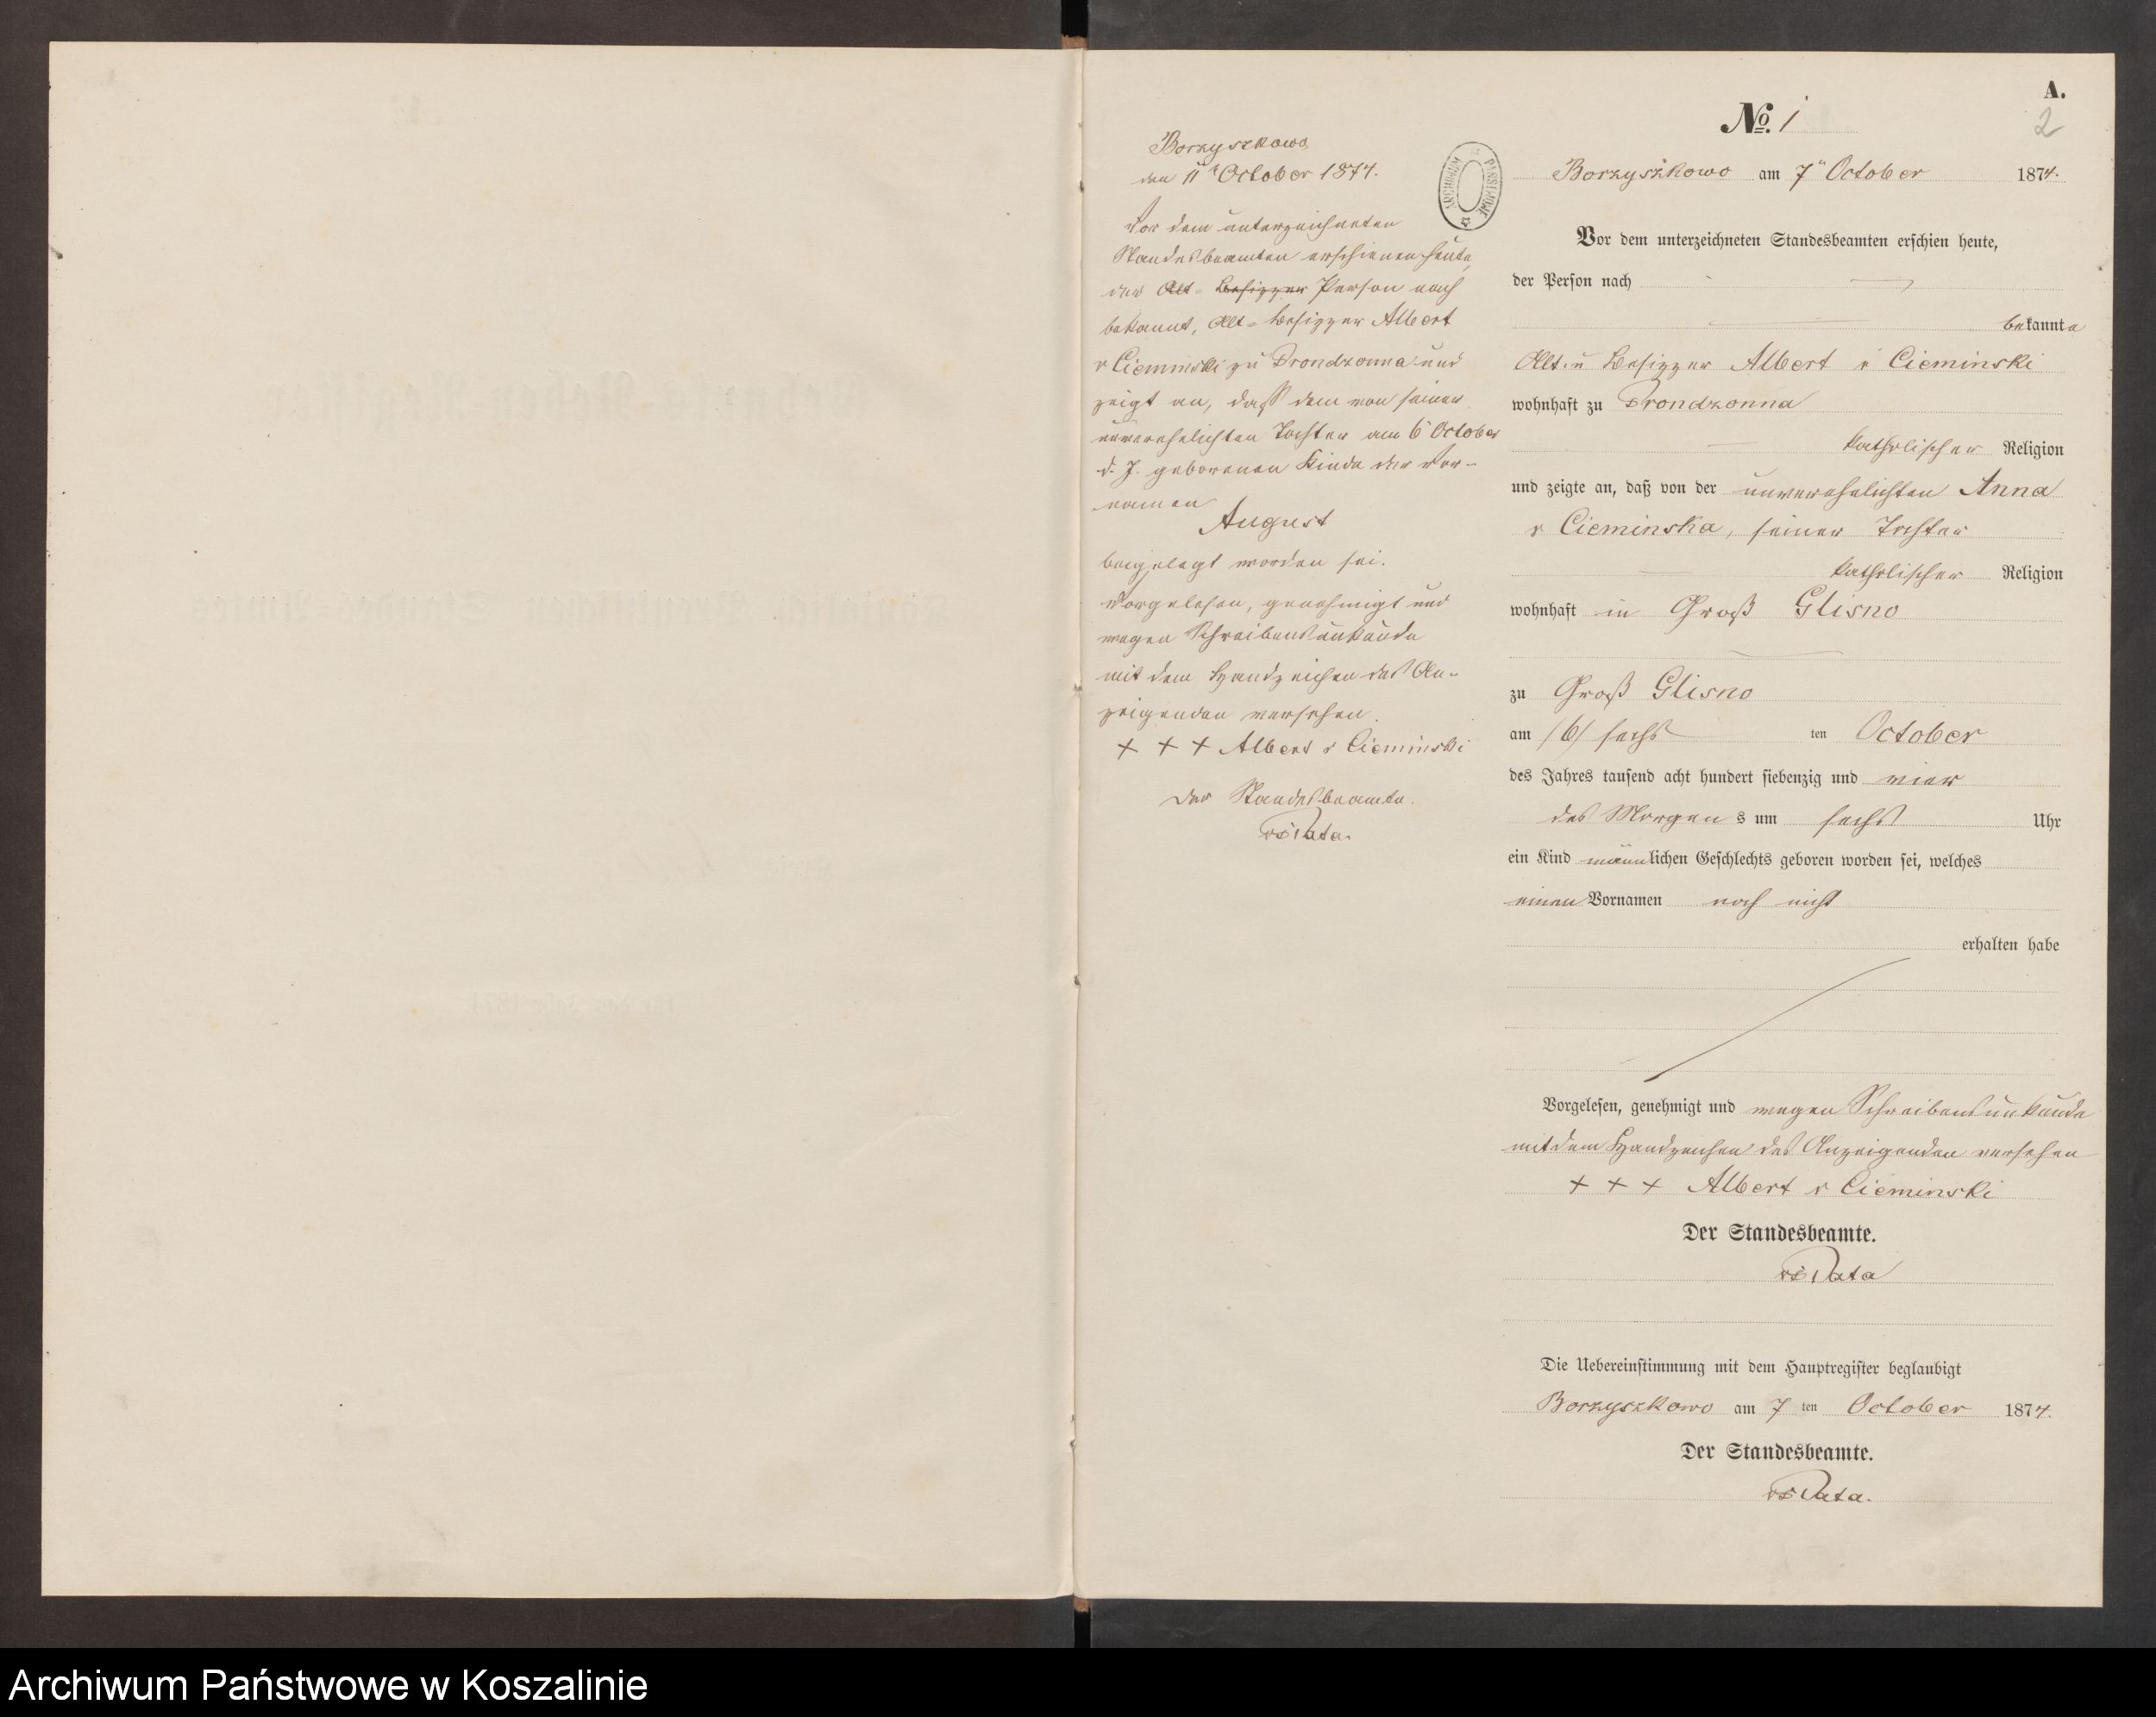 Borzyszkowo
den 11t October 1874.
Vor dem unterzeichneten
Standesbeamten erschienen heute,
der Alt- Besizzer Person nach
bekannt, Alt-Besizzer Albert
v Cieminski zu Prondzonna und
zeigt an, daß dem von seiner
unverehelichten Tochter am 6t October
d. J. geborenen Kinde der Vor-
namen
August
beigelegt worden sei.
Vorgelesen, genehmigt und
wegen Schreibensunkunde
mit dem Handzeichen des An-
zeigenden versehen.
+ + + Albert v Cieminski
Der Standesbeamte.
Pata.
ARCHIWUM PAŃSTWOWE
A.
2
No. 1
Borzyszkowo am 7t October 1874.
Vor dem unterzeichneten Standesbeamten erschien heute,
der Person nach
bekannte
Alt- Besizzer Albert v Cieminski
wohnhaft zu Prondzonna
katholischer Religion
und zeigte an, daß von der unverehelichten Anna
v Cieminska, seiner Tochter
katholischer Religion
wohnhaft in Groß Glisno
zu Groß Glisno
am /6/ sechs ten October
des Jahres tausend acht hundert siebenzig und vier
des Morgens um sechs Uhr
ein Kind männlichen Geschlechts geboren worden sei, welches
einen Vornamen noch nicht
erhalten habe
Vorgelesen, genehmigt und wegen Schreibensunkunde
mit dem Handzeichen des Anzeigenden versehen
+ + + Albert v Cieminski
Der Standesbeamte.
Pata
Die Uebereinstimmung mit dem Hauptregister beglaubigt
Borzyszkowo am 7 ten October 1874.
Der Standesbeamte.
Pata.
Archiwum Państwowe w Koszalinie